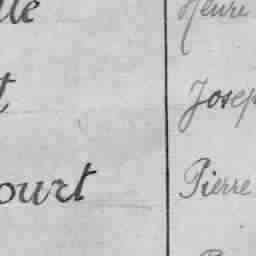 lle Henri
t Josep
ourt Pierre